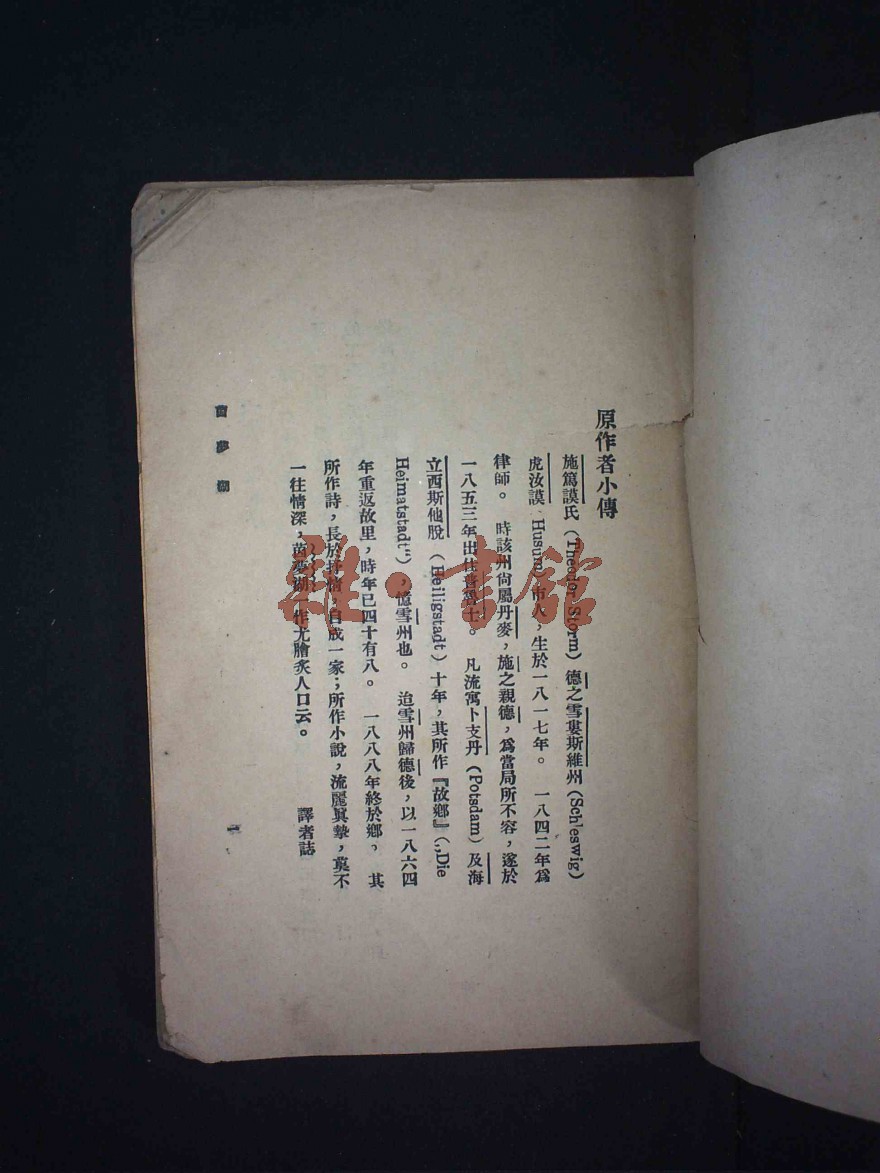 原作者小傳
施篤謨氏(Theodor Storm)德之雪婁斯維州(Schleswig)
虎汝謨(Husum)市人,生於一八一七年。一八四二年爲
律師。時該州尙屬丹麥,施之親德,爲當局所不容,遂於
一八五三年出住普魯士。凡流寓卜支丹(Potsdam)及海
立西斯他脫(Heiligstadt)十年,其所作『故鄉』(„Die
Heimatstadt“),憶雪州也。迨雪州歸德後,以一八六四
年重返故里,時年已四十有八。一八八八年終於鄉。其
所作詩,長於抒情,自成一家;所作小說,流麗眞摯,莫不
一往情深,茵夢湖一作尤膾炙人口云。
譯者誌
茵夢湖
雅·書館